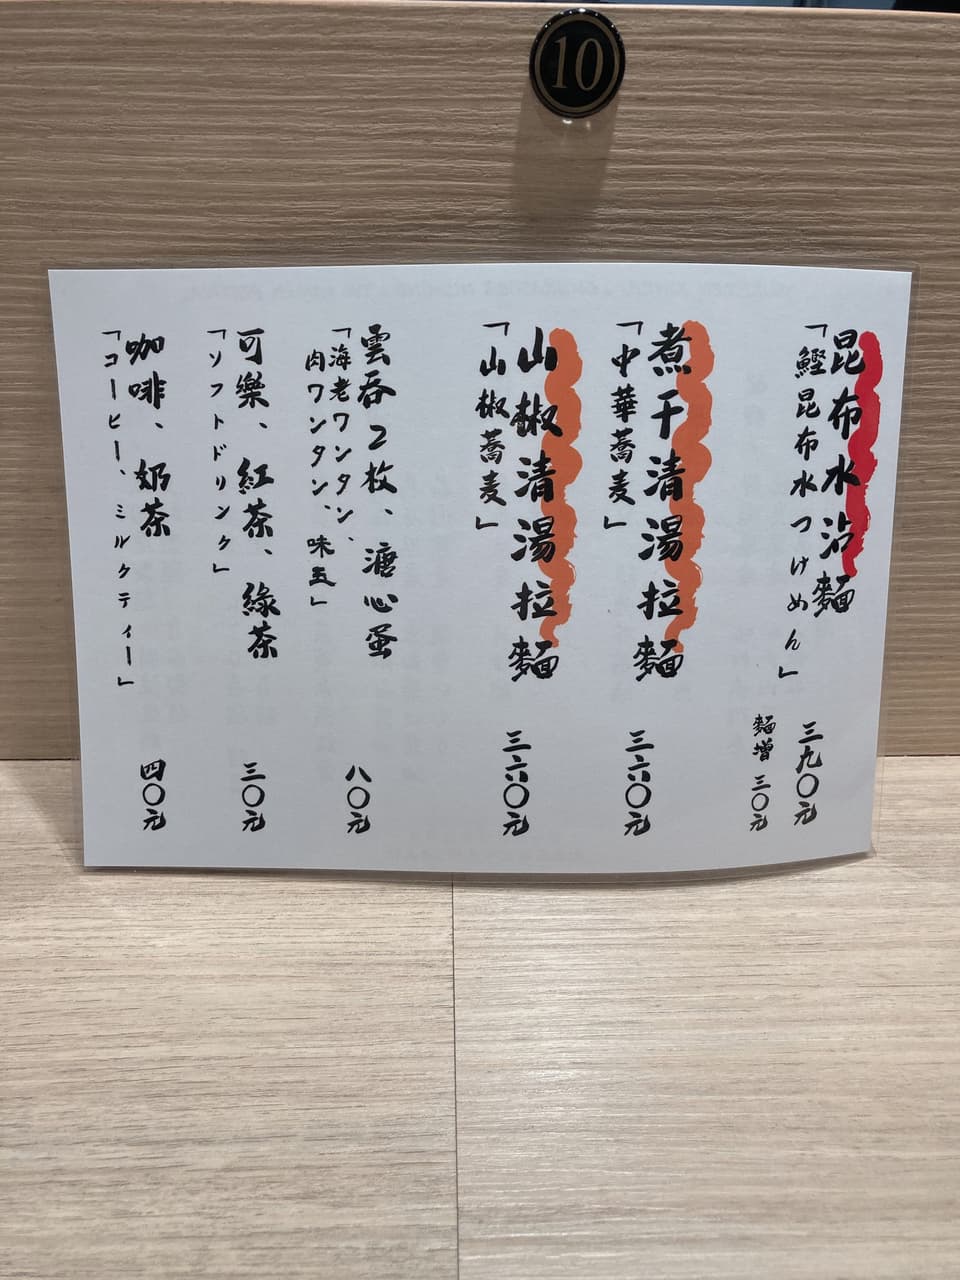 10
昆布水沾麵
「鰹昆布水つけめん」
三九〇元
麵增 三〇元
煮干清湯拉麵
「中華蕎麦」
三六〇元
山椒清湯拉麵
「山椒蕎麦」
三六〇元
雲吞2枚、溏心蛋
「海老ワンタン、
肉ワンタン、味玉」
八〇元
可樂、紅茶、綠茶
「ソフトドリンク」
三〇元
咖啡、奶茶
「コーヒー、ミルクティー」
四〇元